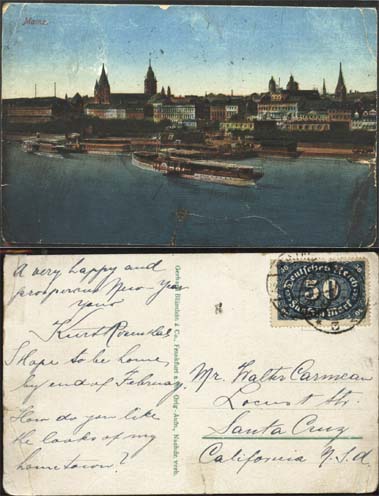 Mainz.
A very happy and
prosperous New-Year
your
Kurt
I hope to be home,
by end of February.
How do you like
the looks of my
hometown?
Gerhard Blümlein & Co., Frankfurt a. M. Orig.-Aufn., Nachdr. verb.
Deutsches Reich
50
Mark
Mr. Walter Carmean
Locust Str.
Santa Cruz
California U.S.A